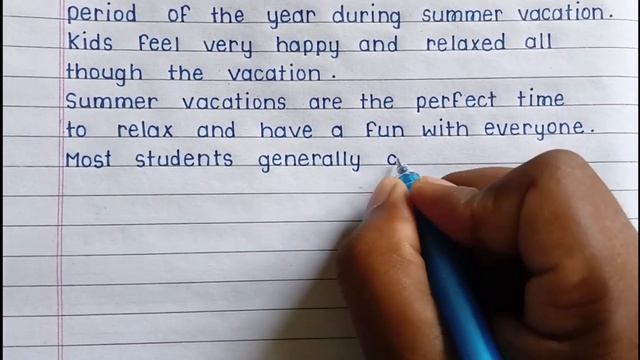 period of the year during summer vacation.
Kids feel very happy and relaxed all
though the vacation.
Summer vacations are the perfect time
to relax and have a fun with everyone.
Most students generally